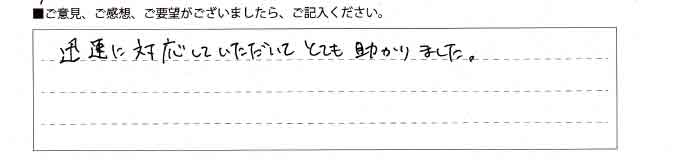 ■ご意見、ご感想、ご要望がございましたら、ご記入ください。
迅速に対応していただいてとても助かりました。